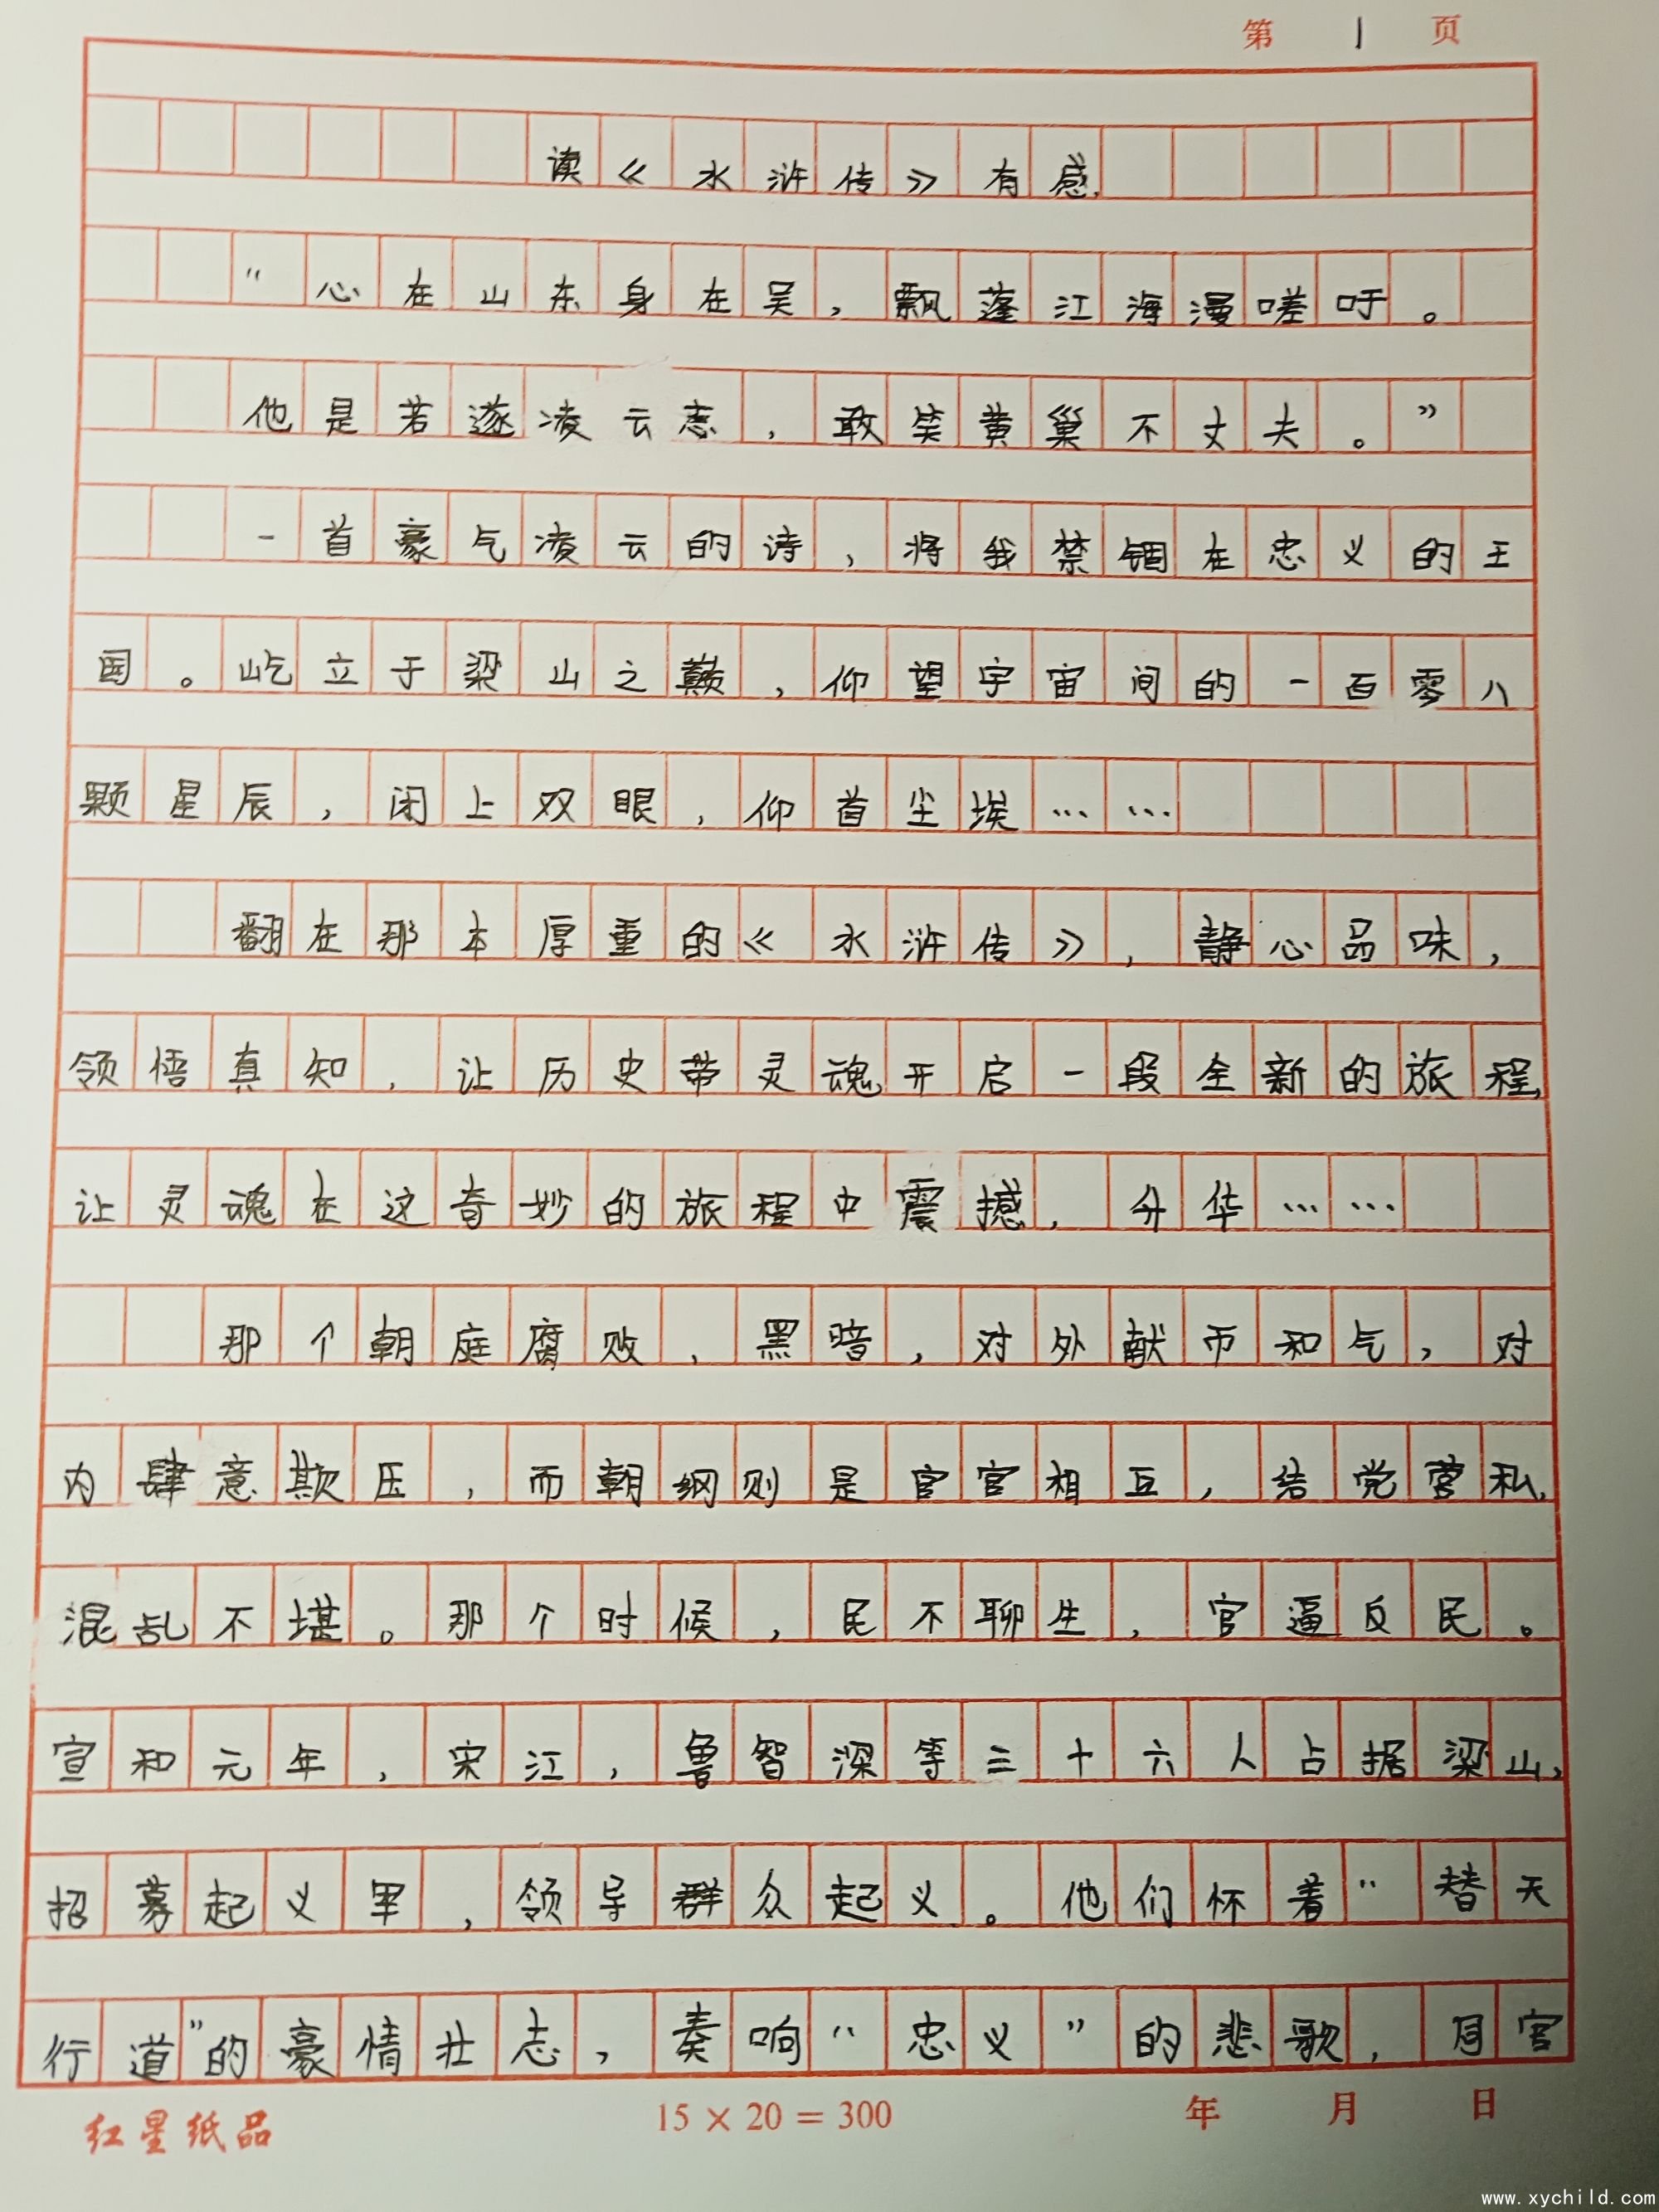 第 1 页
读《水浒传》有感
“心在山东身在吴，飘蓬江海漫嗟吁。
他是若遂凌云志，敢笑黄巢不丈夫。”
一首豪气凌云的诗，将我禁锢在忠义的王
国。屹立于梁山之巅，仰望宇宙间的一百零八
颗星辰，闭上双眼，仰首尘埃……
翻在那本厚重的《水浒传》，静心品味，
领悟真知，让历史带灵魂开启一段全新的旅程，
让灵魂在这奇妙的旅程中震撼，升华……
那个朝庭腐败、黑暗，对外献币和气，对
内肆意欺压，而朝纲则是官官相互，结党营私，
混乱不堪。那个时候，民不聊生，官逼反民。
宣和元年，宋江，鲁智深等三十六人占据梁山，
招募起义军，领导群众起义。他们怀着“替天
行道”的豪情壮志，奏响“忠义”的悲歌，同官
红星纸品
15×20=300
年 月 日
www.xychild.com